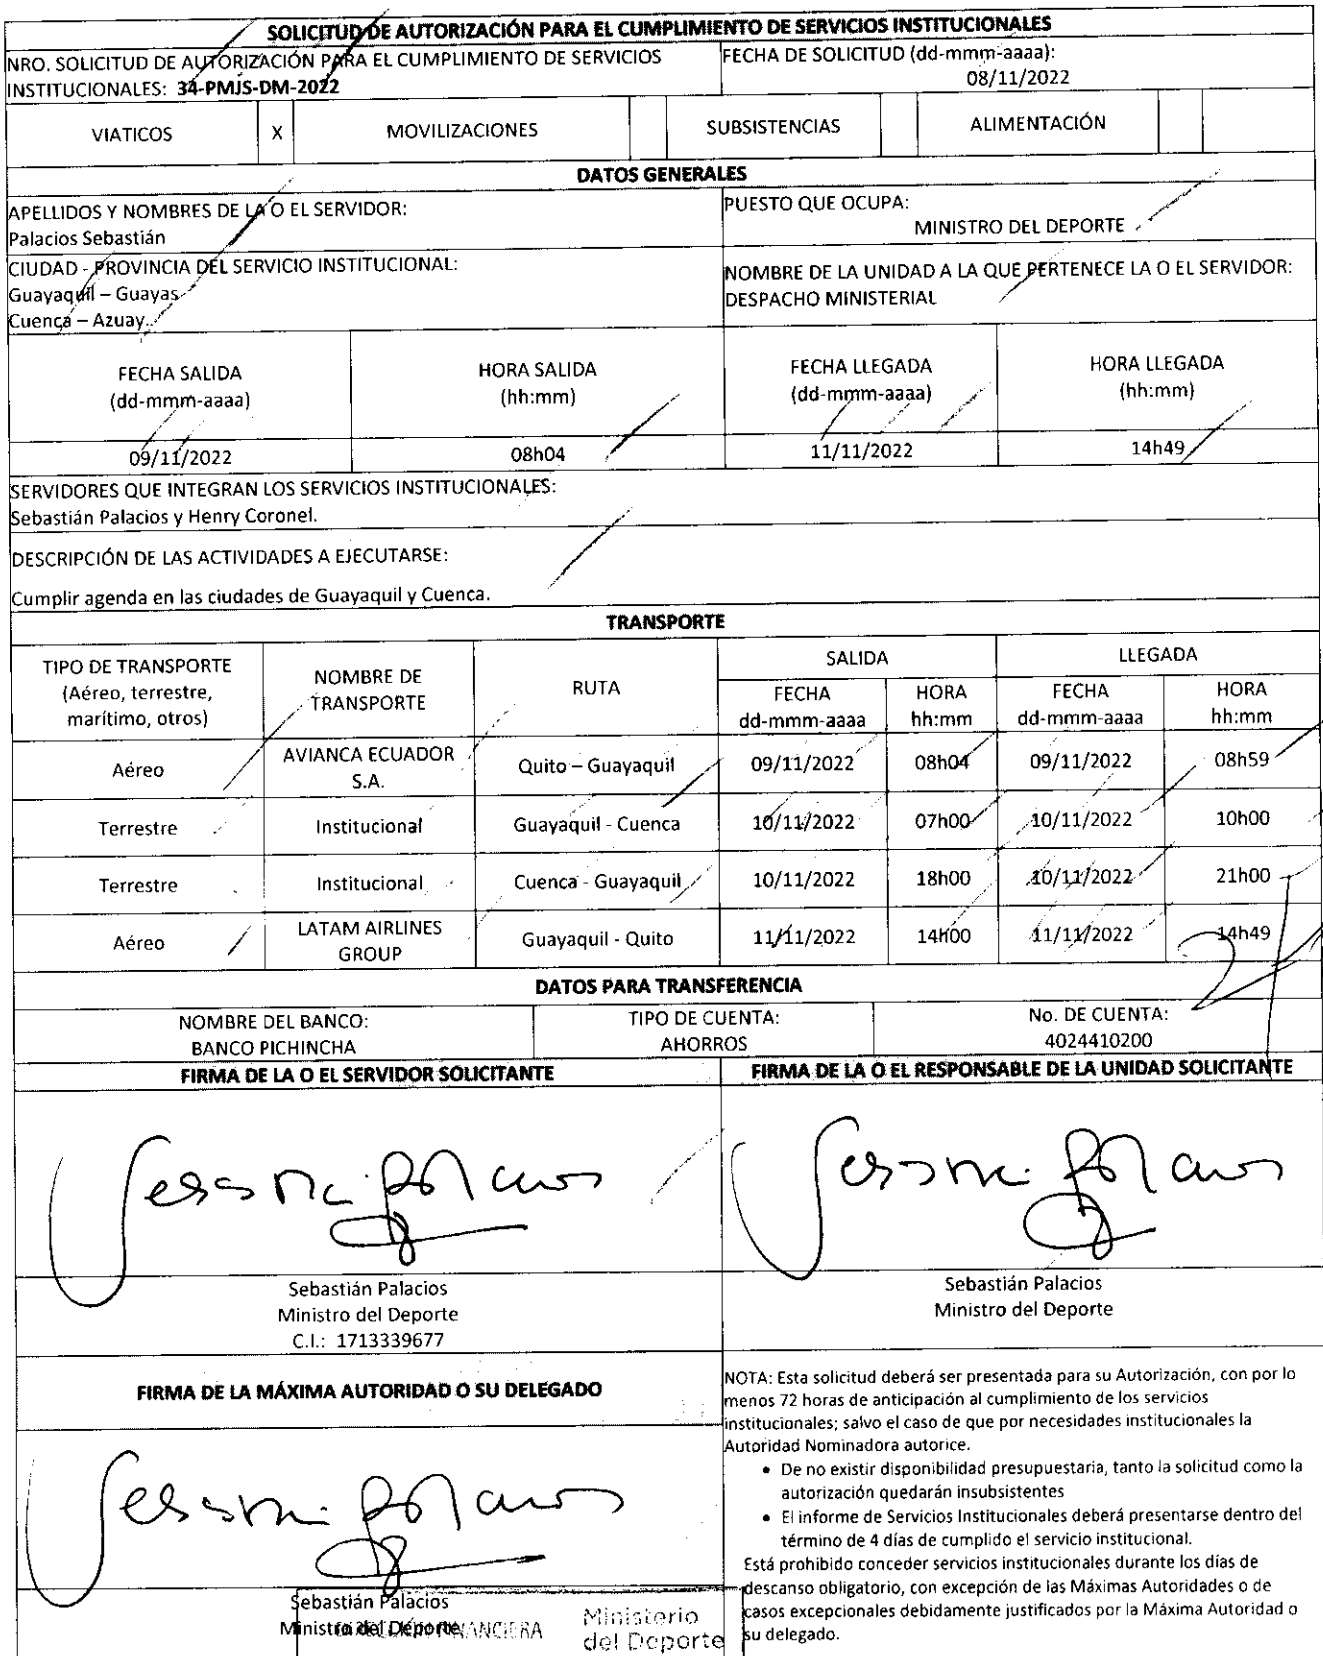 SOLICITUD DE AUTORIZACIÓN PARA EL CUMPLIMIENTO DE SERVICIOS INSTITUCIONALES
NRO. SOLICITUD DE AUTORIZACIÓN PARA EL CUMPLIMIENTO DE SERVICIOS
INSTITUCIONALES: 34-PMJS-DM-2022
FECHA DE SOLICITUD (dd-mmm-aaaa):
08/11/2022
VIATICOS X MOVILIZACIONES SUBSISTENCIAS ALIMENTACIÓN
DATOS GENERALES
APELLIDOS Y NOMBRES DE LA O EL SERVIDOR:
Palacios Sebastián
PUESTO QUE OCUPA:
MINISTRO DEL DEPORTE
CIUDAD - PROVINCIA DEL SERVICIO INSTITUCIONAL:
Guayaquil – Guayas
Cuenca – Azuay
NOMBRE DE LA UNIDAD A LA QUE PERTENECE LA O EL SERVIDOR:
DESPACHO MINISTERIAL
FECHA SALIDA
(dd-mmm-aaaa)
HORA SALIDA
(hh:mm)
FECHA LLEGADA
(dd-mmm-aaaa)
HORA LLEGADA
(hh:mm)
09/11/2022 08h04 11/11/2022 14h49
SERVIDORES QUE INTEGRAN LOS SERVICIOS INSTITUCIONALES:
Sebastián Palacios y Henry Coronel.
DESCRIPCIÓN DE LAS ACTIVIDADES A EJECUTARSE:
Cumplir agenda en las ciudades de Guayaquil y Cuenca.
TRANSPORTE
TIPO DE TRANSPORTE
(Aéreo, terrestre,
marítimo, otros)
NOMBRE DE
TRANSPORTE
RUTA
SALIDA
LLEGADA
FECHA
dd-mmm-aaaa
HORA
hh:mm
FECHA
dd-mmm-aaaa
HORA
hh:mm
Aéreo
AVIANCA ECUADOR
S.A.
Quito – Guayaquil 09/11/2022 08h04 09/11/2022 08h59
Terrestre Institucional Guayaquil - Cuenca 10/11/2022 07h00 10/11/2022 10h00
Terrestre Institucional Cuenca - Guayaquil 10/11/2022 18h00 10/11/2022 21h00
Aéreo
LATAM AIRLINES
GROUP
Guayaquil - Quito 11/11/2022 14h00 11/11/2022 14h49
DATOS PARA TRANSFERENCIA
NOMBRE DEL BANCO:
BANCO PICHINCHA
TIPO DE CUENTA:
AHORROS
No. DE CUENTA:
4024410200
FIRMA DE LA O EL SERVIDOR SOLICITANTE
FIRMA DE LA O EL RESPONSABLE DE LA UNIDAD SOLICITANTE
Sebastián Palacios
Ministro del Deporte
C.I.: 1713339677
Sebastián Palacios
Ministro del Deporte
FIRMA DE LA MÁXIMA AUTORIDAD O SU DELEGADO
Sebastián Palacios
Ministro del Deporte
Ministerio
del Deporte
NOTA: Esta solicitud deberá ser presentada para su Autorización, con por lo
menos 72 horas de anticipación al cumplimiento de los servicios
institucionales; salvo el caso de que por necesidades institucionales la
Autoridad Nominadora autorice.
• De no existir disponibilidad presupuestaria, tanto la solicitud como la
autorización quedarán insubsistentes
• El informe de Servicios Institucionales deberá presentarse dentro del
término de 4 días de cumplido el servicio institucional.
Está prohibido conceder servicios institucionales durante los días de
descanso obligatorio, con excepción de las Máximas Autoridades o de
casos excepcionales debidamente justificados por la Máxima Autoridad o
su delegado.